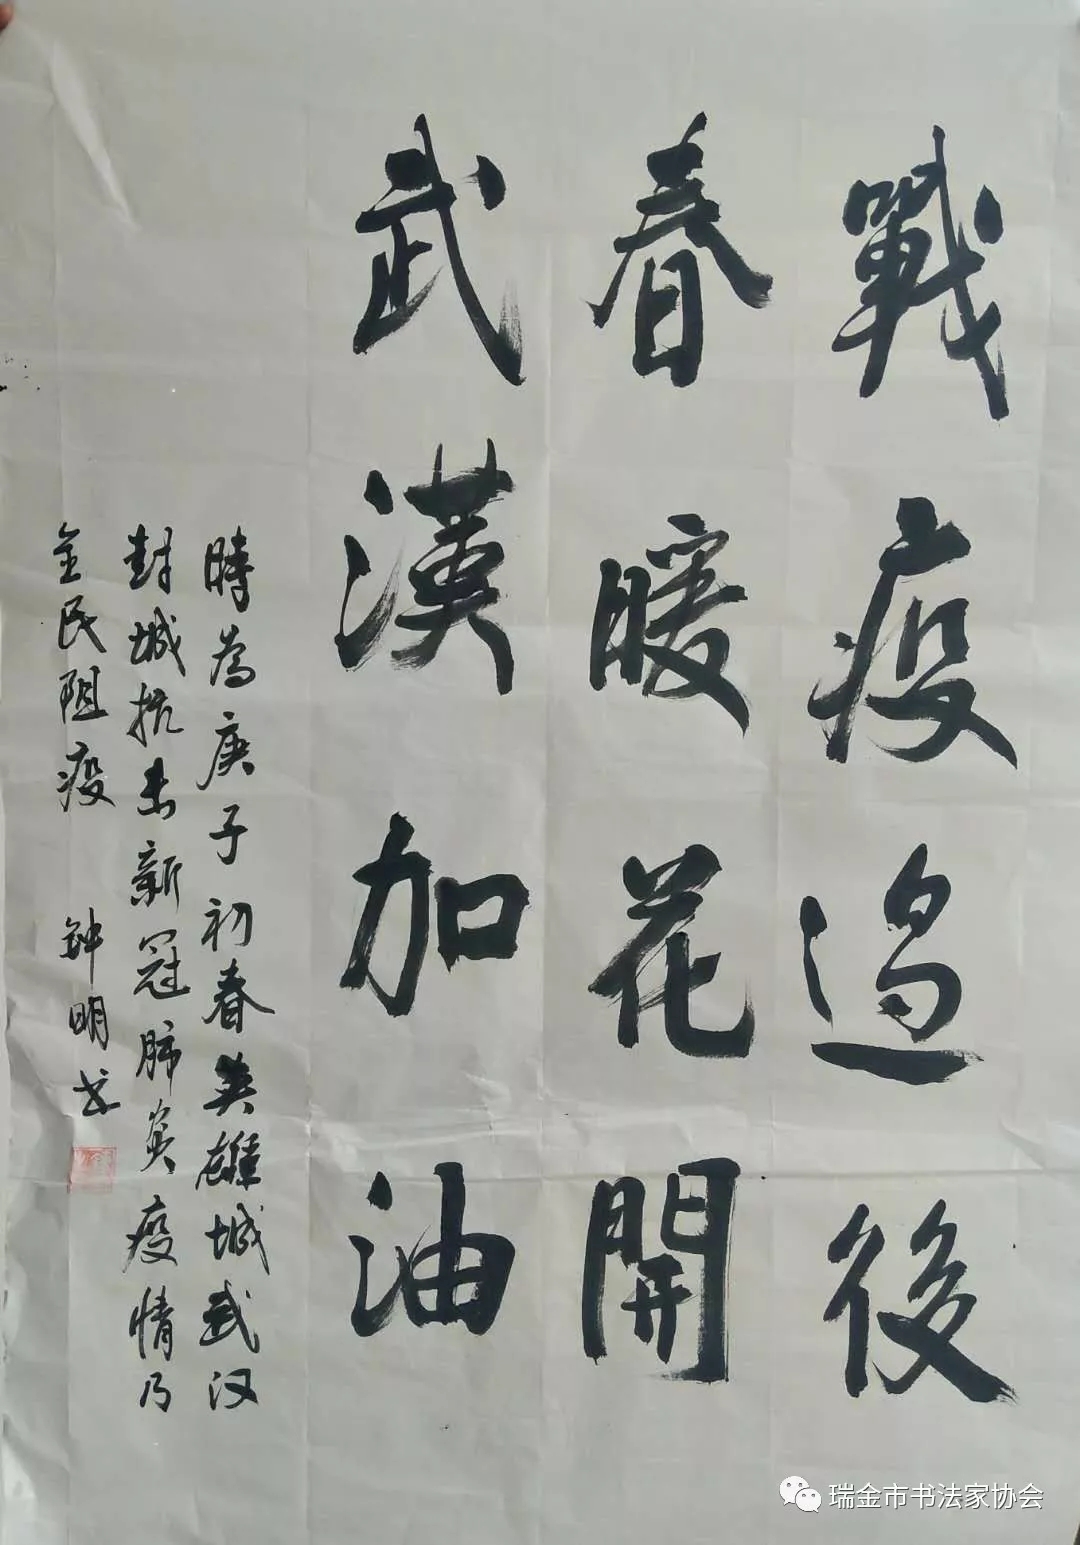 戰疫過後
春暖花開
武漢加油
時為庚子初春英雄城武汉
封城抗击新冠肺炎疫情乃
全民阻疫 钟明书
瑞金市书法家协会